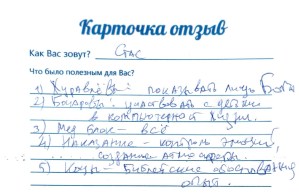 Карточка отзыв
Как Вас зовут? Стас
Что было полезным для Вас?
1) Журавлёва: показывать лишь Бога
2) : участвовать с детьми
в компьютерной жизни.
3) Мед блок – всё
4) Наказание – контроль эмоций,
создание атмосферы.
5) – Библейские обоснования
опыт.